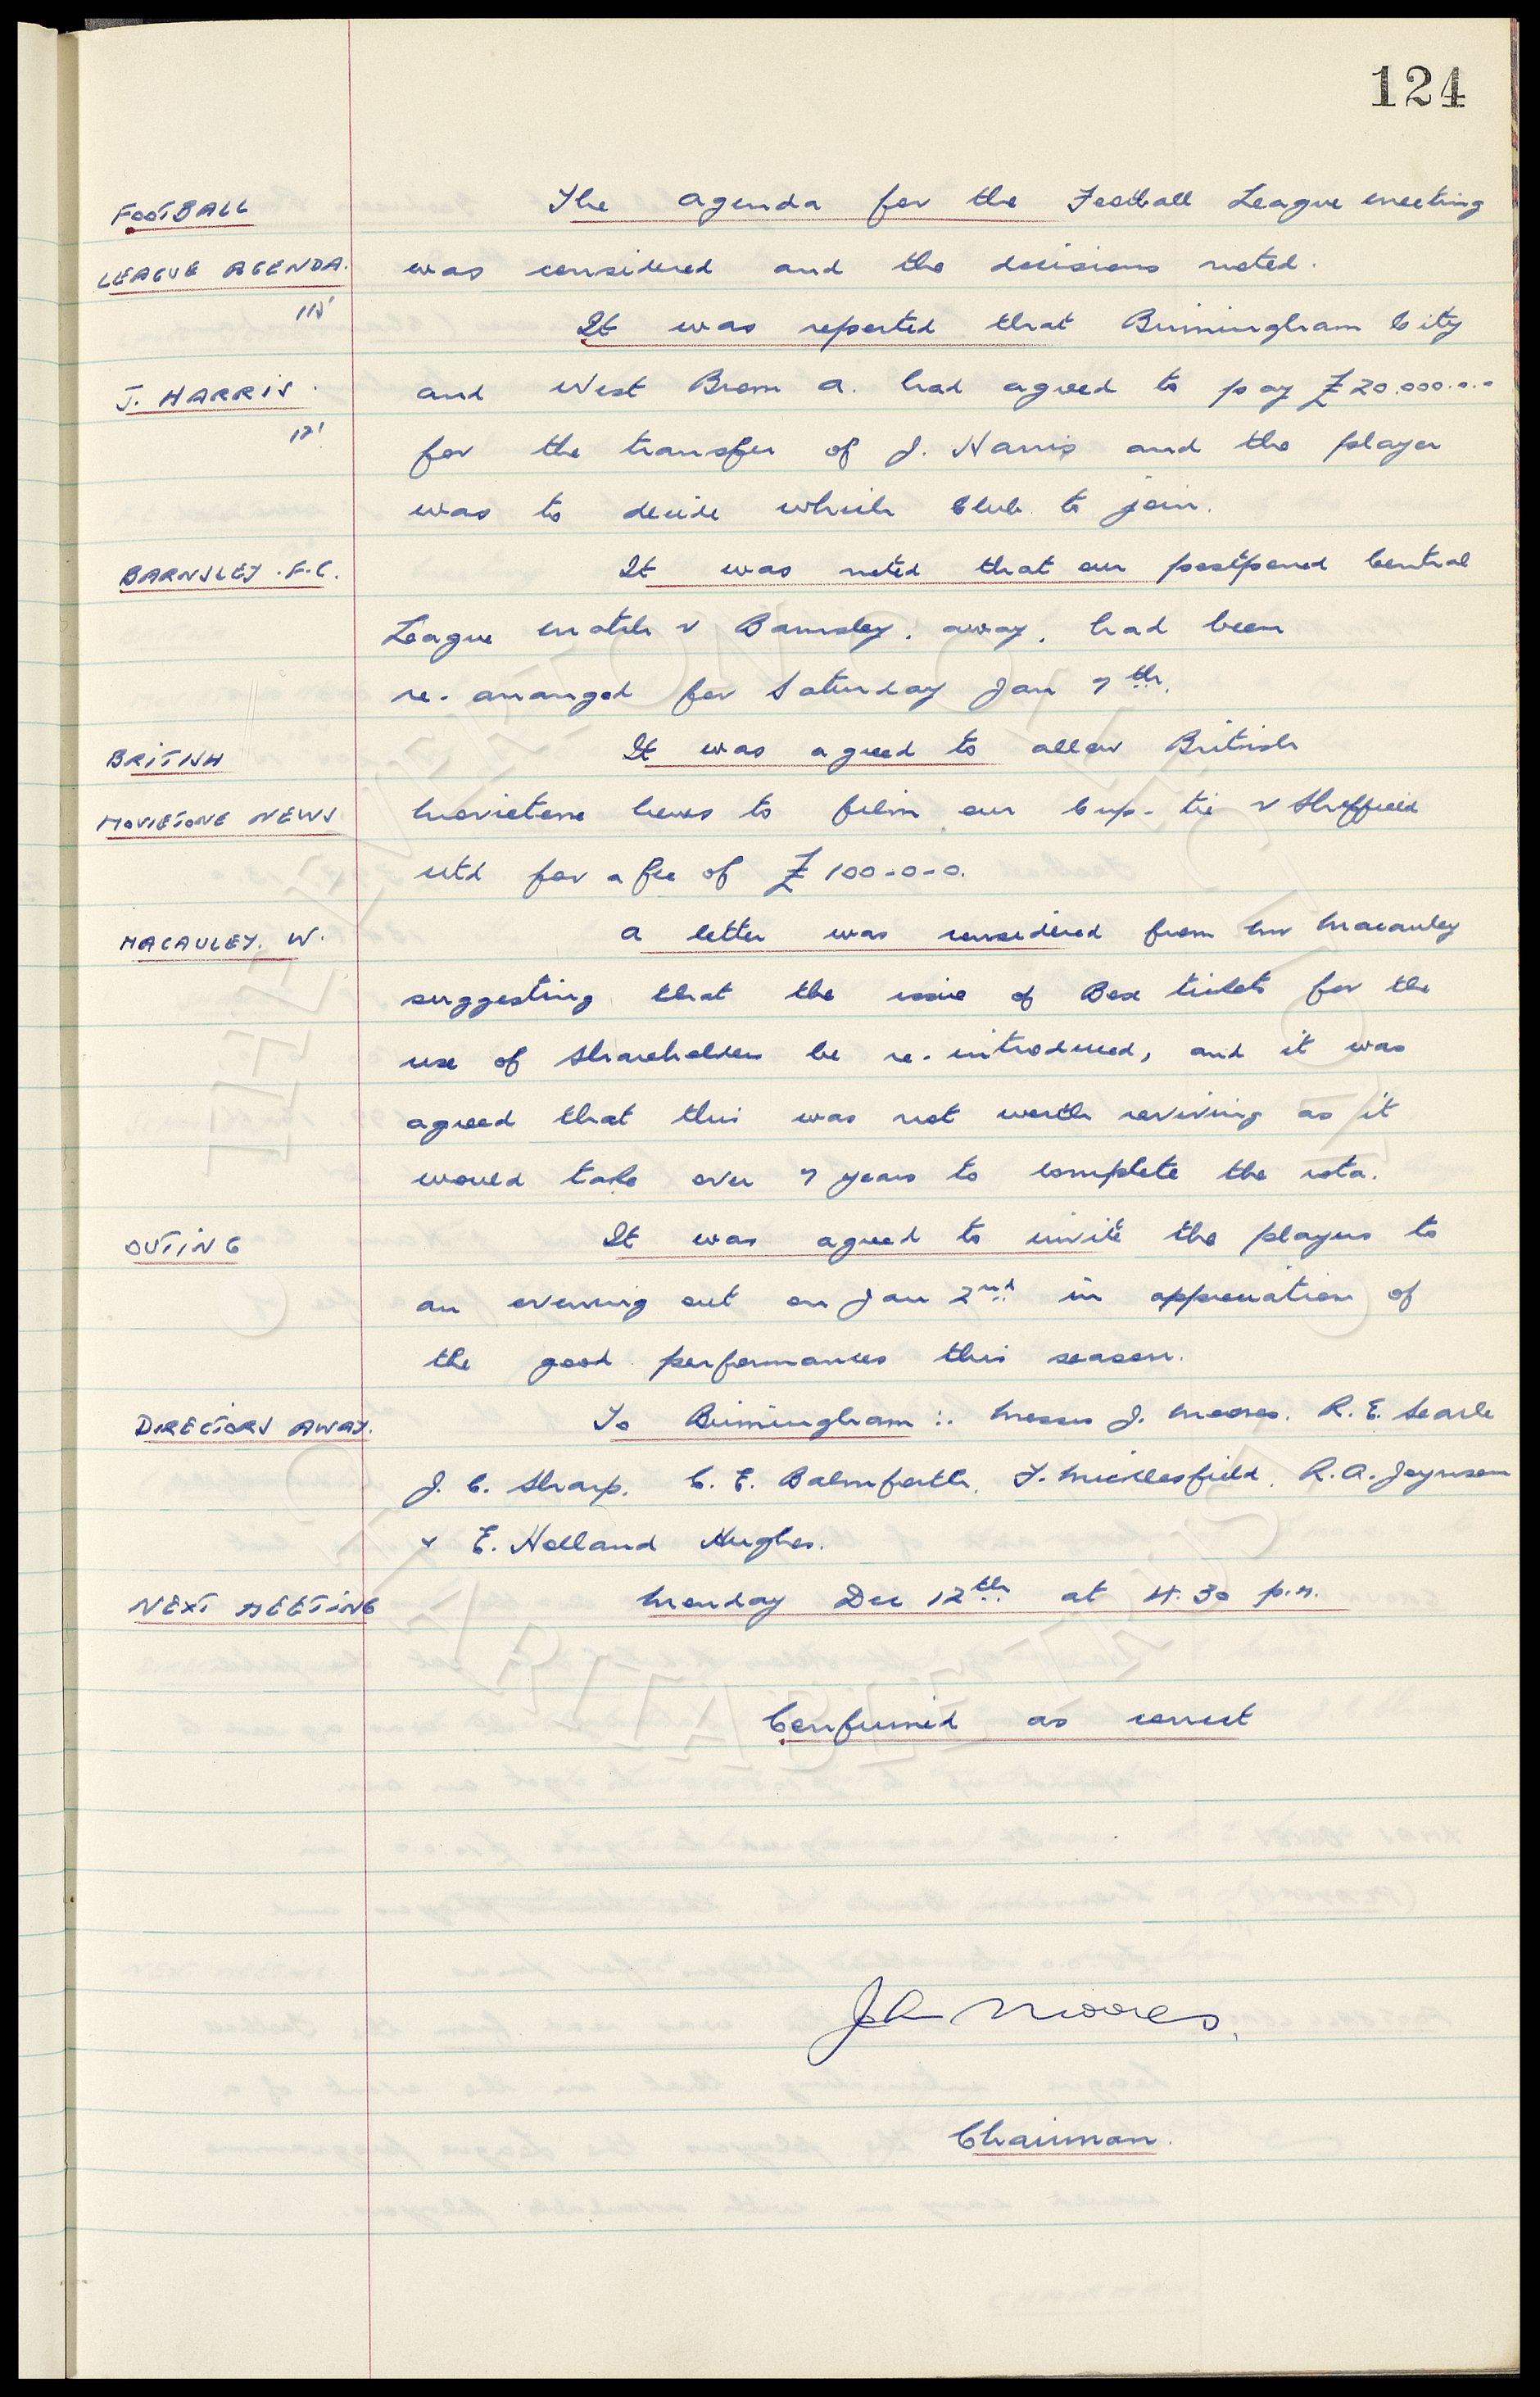 124
FOOTBALL The agenda for the Football League meeting
LEAGUE AGENDA. was considered and the decisions noted.
It was reported that Birmingham City
J. HARRIS. and West Brom A. had agreed to pay £20.000.0.0
for the transfer of J. Harris and the player
was to decide which Club to join.
BARNSLEY. F.C. It was noted that our postponed Central
League match v Barnsley, away, had been
re-arranged for Saturday Jan 7th.
BRITISH It was agreed to allow British
MOVIETONE NEWS Movietone News to film our Cup-tie v Sheffield
Utd for a fee of £100-0-0.
MACAULEY. W. A letter was considered from Mr Macauley
suggesting that the issue of Box tickets for the
use of Shareholders be re-introduced, and it was
agreed that this was not worth reviving as it
would take over 7 years to complete the rota.
OUTING It was agreed to invite the players to
an evening out on Jan 2nd in appreciation of
the good performances this season.
DIRECTORS AWAY. To Birmingham:. Messrs J. Moores. R.E. Searle
J.C. Sharp. C.E. Balmforth. F. Micklesfield. R.A. Joynson
& E. Holland Hughes.
NEXT MEETING Monday Dec 12th at 4.30 p.m.
Confirmed as correct
John Moores.
Chairman.